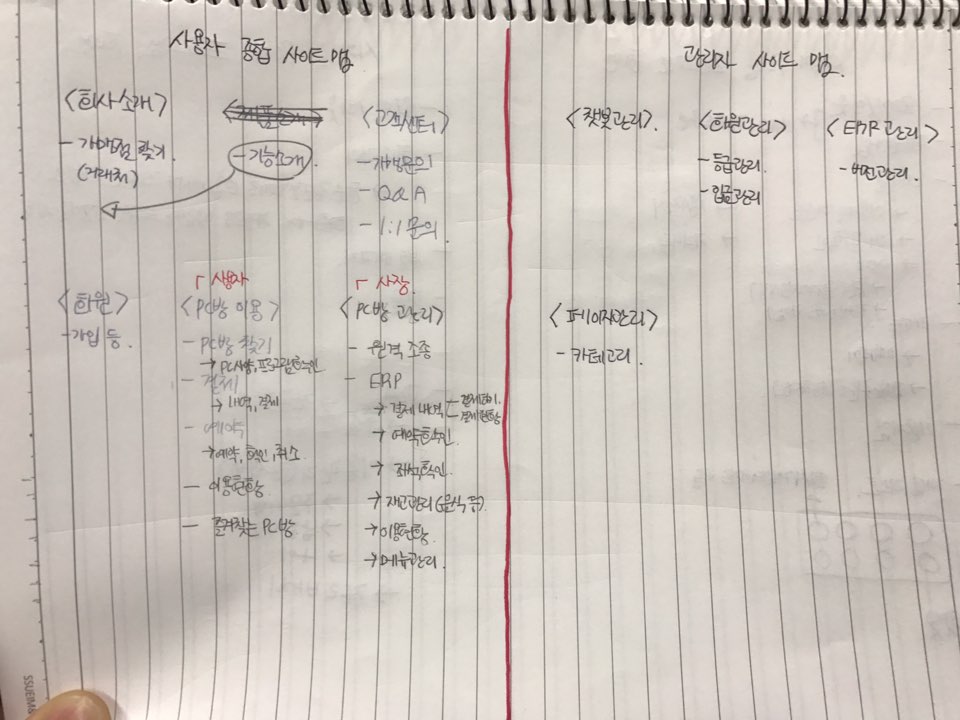 사용자 종합 사이트 맵
<회사소개>
- 가맹점 찾기
(거래처)
- 기능소개
<고객센터>
- 가맹문의
- Q&A
- 1:1 문의
<회원>
- 가입 등
「사용자
<PC방 이용>
- PC방 찾기
→ PC사양, 프로그램확인
- 결제
→ 내역, 결제
- 예약
→ 예약, 확인, 취소
- 이용현황
- 즐겨찾는 PC방
「사장
<PC방 관리>
- 원격 조종
- ERP
→ 결제 내역
결제현황
→ 예약확인
→ 좌석확인
→ 재고관리 (음식 등)
→ 이용현황
→ 메뉴관리
관리자 사이트 맵
<챗봇관리>
<회원관리>
- 등급관리
- 입금관리
<ERP 관리>
- 버전관리
<페이지관리>
- 카테고리
SSUEIM&